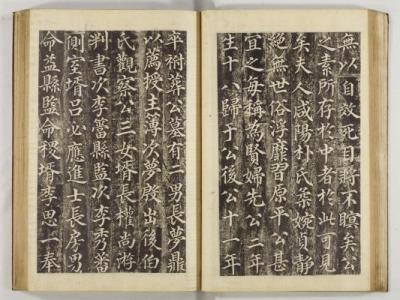 無以自效死目將不瞑矣公
之素所存於中者於此可見
矣夫人咸陽朴氏柔婉貞静
絶無世俗浮靡習原平公甚
宜之每稱為賢婦先公三年
生十八歸于公後公十一年
卒祔葬公墓有二男長夢鼎
以薦授主簿次夢殷出後伯
氏觀察公三女壻長權尚游
判書次李蓄縣監次李秀蕃
側室壻呂必應進士長房男
命益縣監命稷壻李思一奉